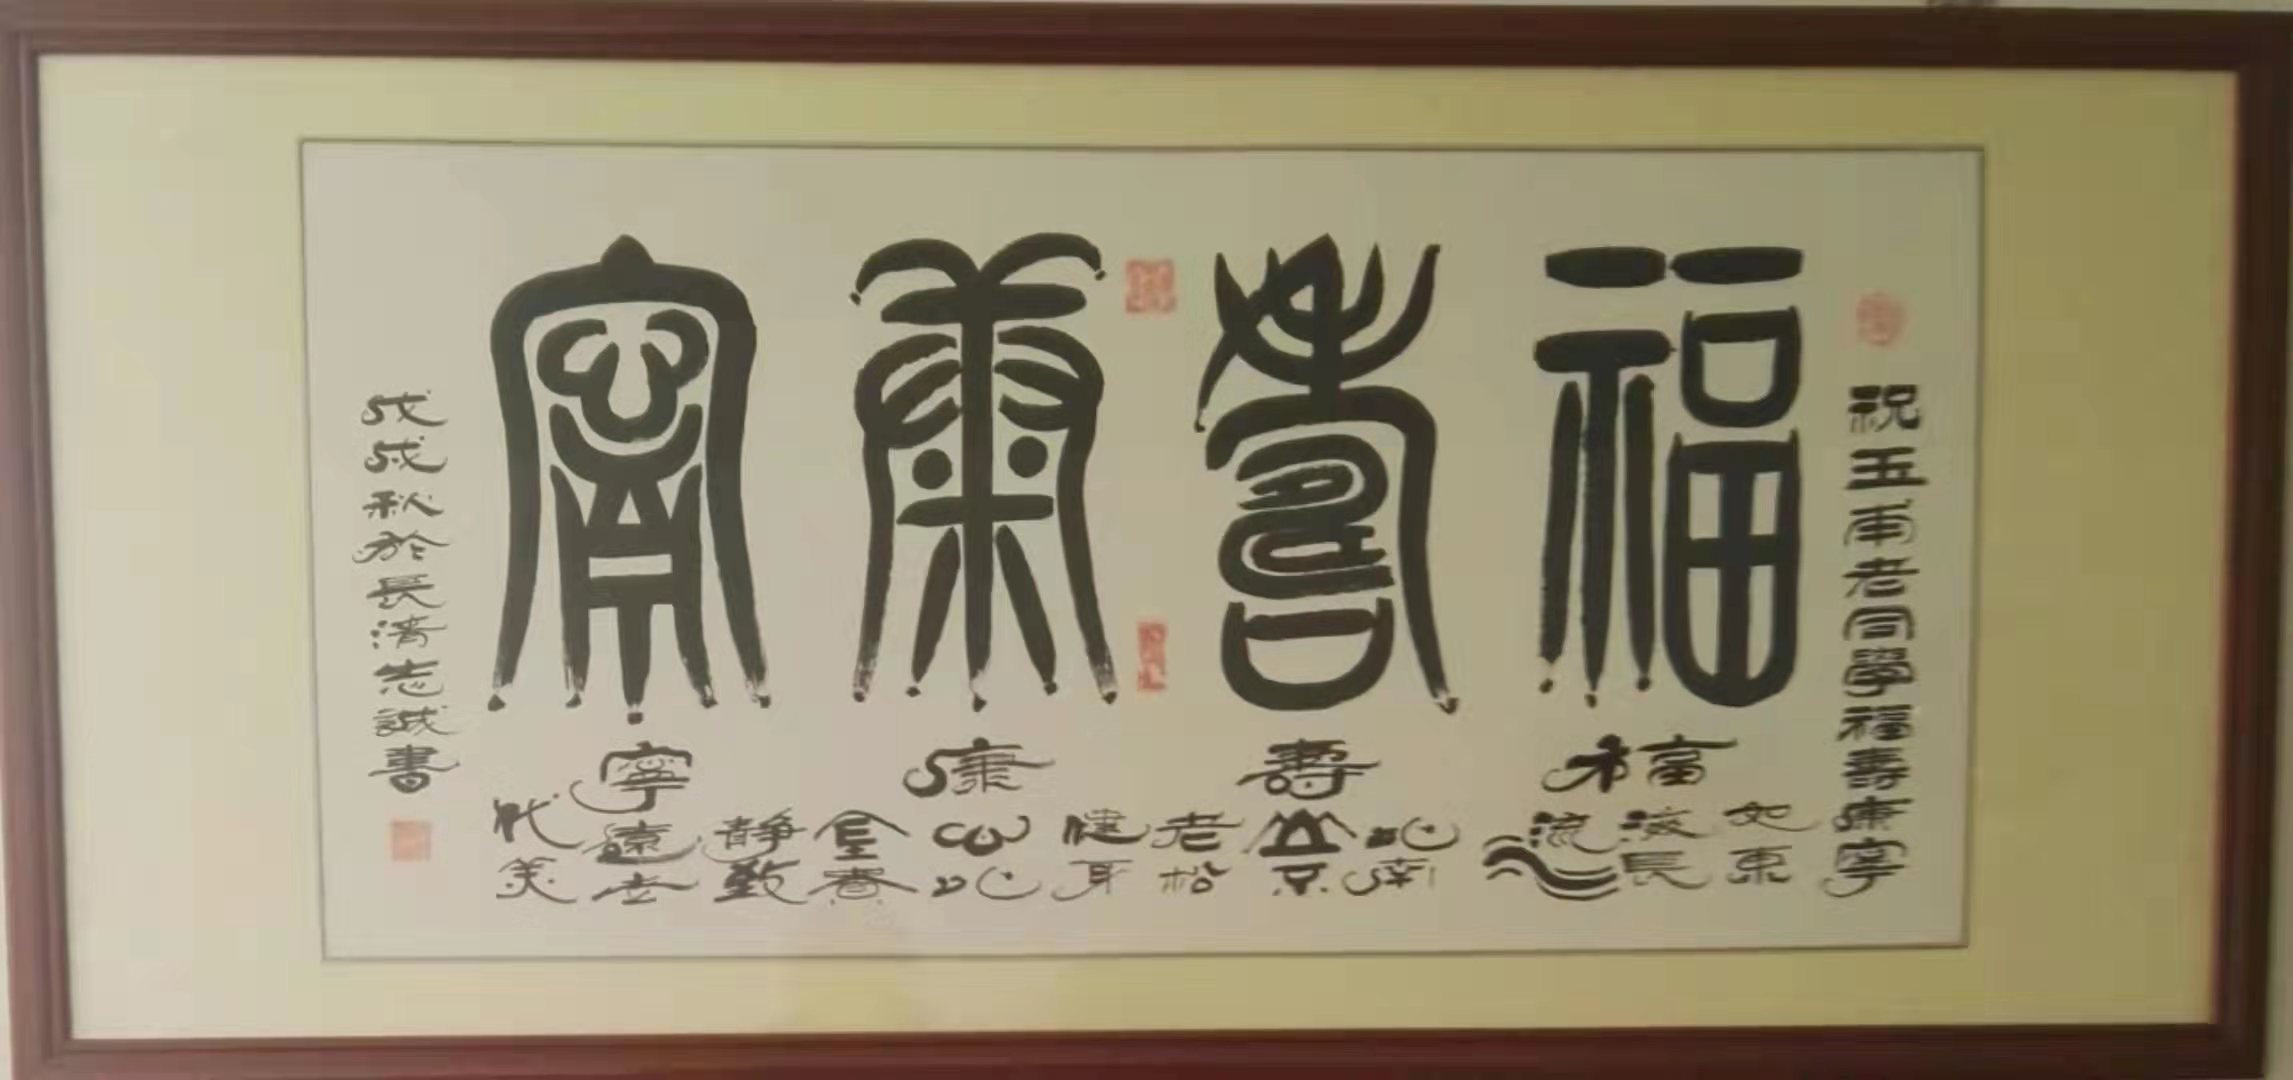 祝五甫老同學福壽康寧
福壽康寧
福
如東
海長
流水
壽
比南
山不
老松
康
健身
心比
金貴
寧
靜致
遠世
代美
戊戌秋於長清志誠書